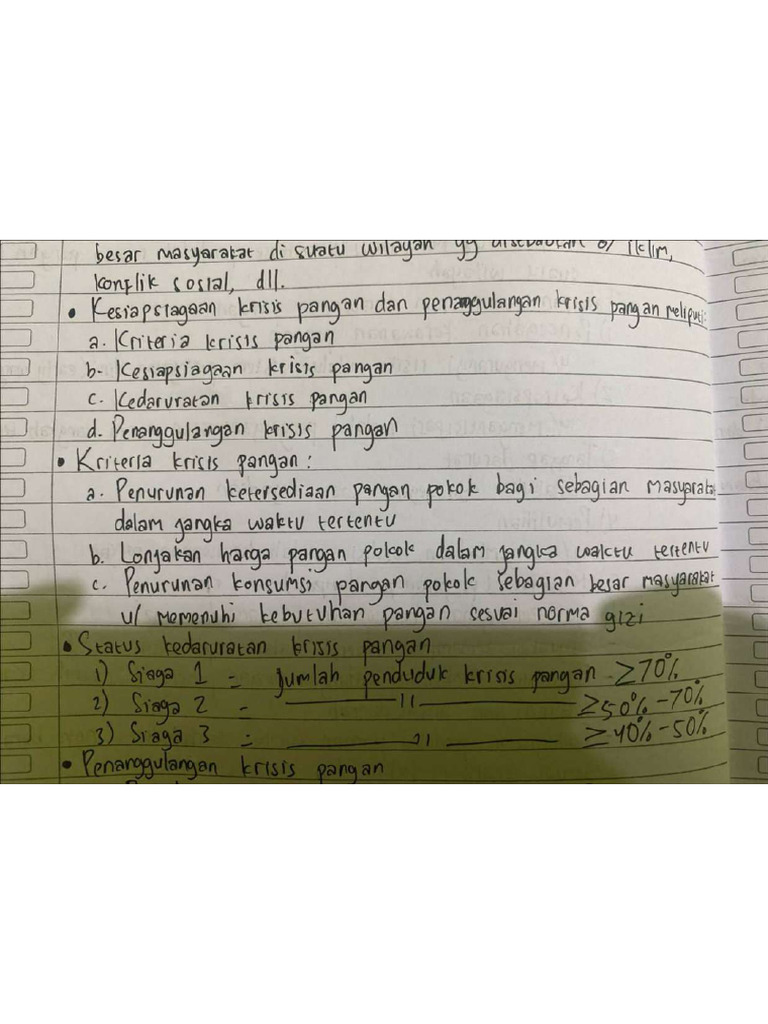 besar masyarakat di suatu wilayah yg disebabkan o/ iklim,
konflik sosial, dll.
• Kesiapsiagaan krisis pangan dan penanggulangan krisis pangan meliputi:
a. Kriteria krisis pangan
b. Kesiapsiagaan krisis pangan
c. Kedaruratan krisis pangan
d. Penanggulangan krisis pangan
• Kriteria krisis pangan :
a. Penurunan ketersediaan pangan pokok bagi sebagian masyarakat
dalam jangka waktu tertentu
b. Lonjakan harga pangan pokok dalam jangka waktu tertentu
c. Penurunan konsumsi pangan pokok sebagian besar masyarakat
u/ memenuhi kebutuhan pangan sesuai norma gizi
• Status kedaruratan krisis pangan
1) Siaga 1 = Jumlah penduduk krisis pangan ≥70%
2) Siaga 2 = —— 11 —— ≥50%-70%
3) Siaga 3 = —— 11 —— ≥40%-50%
• Penanggulangan krisis pangan